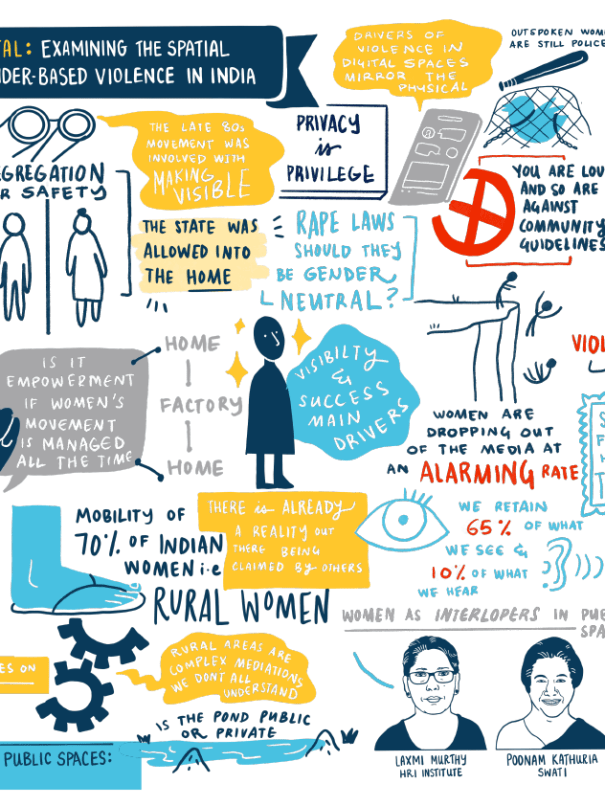 TAL: EXAMINING THE SPATIAL
DER-BASED VIOLENCE IN INDIA
DRIVERS OF
VIOLENCE IN
DIGITAL SPACES
MIRROR THE
PHYSICAL
OUTSPOKEN WOM
ARE STILL POLICE
THE LATE 80s
MOVEMENT WAS
INVOLVED WITH
MAKING
VISIBLE
PRIVACY
is
PRIVILEGE
EGREGATION
R SAFETY
YOU ARE LOU
AND SO ARE
AGAINST
COMMUNITY
GUIDELINES
THE STATE WAS
ALLOWED INTO
THE HOME
RAPE LAWS
SHOULD THEY
BE GENDER
NEUTRAL?
IS IT
EMPOWERMENT
IF WOMEN'S
MOVEMENT
IS MANAGED
ALL THE TIME
HOME
FACTORY
HOME
VISIBILTY
&
SUCCESS
MAIN
DRIVERS
VIOL
WOMEN ARE
DROPPING OUT
OF THE MEDIA AT
AN ALARMING RATE
MOBILITY OF
70% OF INDIAN
WOMEN i.e
RURAL WOMEN
THERE is ALREADY
A REALITY OUT
THERE BEING
CLAIMED BY OTHERS
WE RETAIN
65% OF WHAT
WE SEE &
10% OF WHAT
WE HEAR
WOMEN AS INTERLOPERS IN PUB
SPA
ES ON
RURAL AREAS ARE
COMPLEX MEDIATIONS
WE DON'T ALL
UNDERSTAND
IS THE POND PUBLIC
OR PRIVATE
PUBLIC SPACES:
LAXMI MURTHY
HRI INSTITUTE
POONAM KATHURIA
SWATI